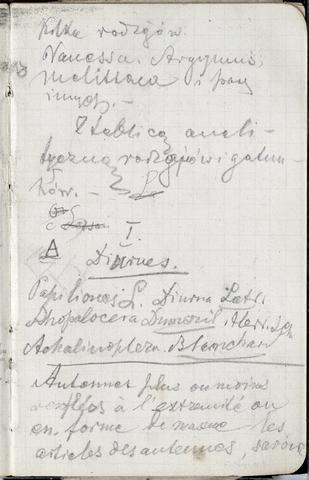 Kilka rodzajów
Vanessa. Argynnis,
Melitaea i parę
innych. —
Z tablicą anali-
tyczną rodzajów i gatun-
ków. —
I.
A
Diurnes.
Papiliones L. Diurna Latr.
Rhopalocera Dumeril, Herr.
Achalinoptera. Blanchard
Antennes plus ou moins
renflées à l'extremité ou
en forme de massue les
articles des antennes, savoir